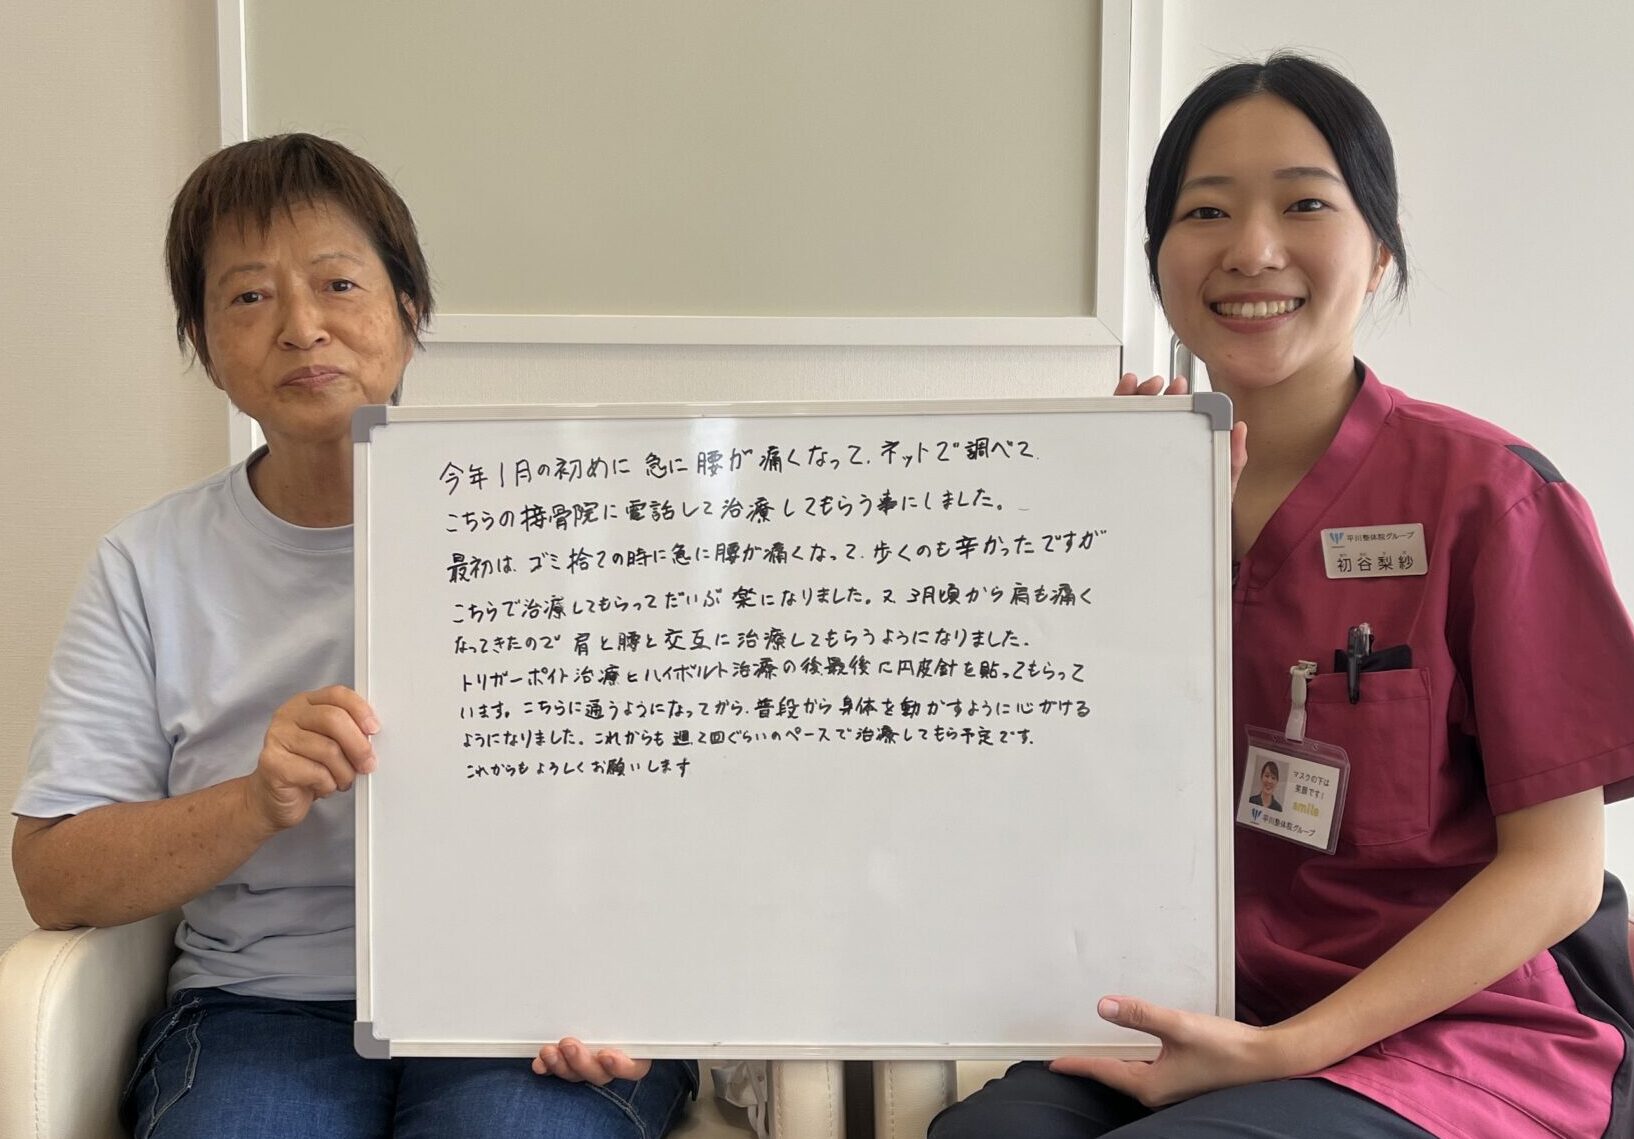 今年1月の初めに急に腰が痛くなって、ネットで調べて、
こちらの接骨院に電話して治療してもらう事にしました。
最初は、ゴミ捨ての時に急に腰が痛くなって、歩くのも辛かったですが
こちらで治療してもらってだいぶ楽になりました。又3月頃から肩も痛く
なってきたので肩と腰と交互に治療してもらうようになりました。
トリガーポイント治療とハイボルト治療の後最後に円皮針を貼ってもらって
います。こちらに通うようになってから、普段から身体を動かすように心がける
ようになりました。これからも週で四ぐらいのペースで治療してもら予定です。
これからもよろしくお願いします
平川整体院グループ
初谷梨紗
マスクの下は
笑顔です!
smile
平川整体院グループ